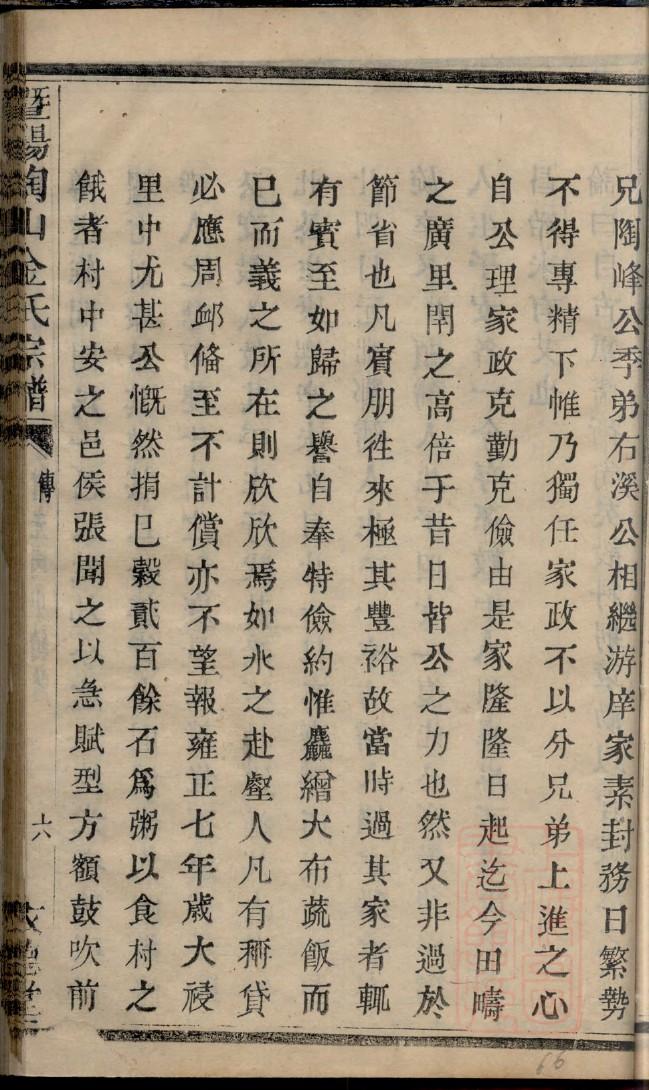 兄陶峰公季弟右溪公相繼游庠家素封務日繁勢
不得專精下帷乃獨任家政不以分兄弟上進之心
自公理家政克勤克儉由是家隆隆日起迄今田疇
之廣里閈之高倍于昔日皆公之力也然又非過於
節省也凡賓朋徃來極其豐裕故當時過其家者輒
有賓至如歸之譽自奉特儉約惟麤繒大布蔬飯而
已而義之所在則欣欣焉如水之赴壑人凡有稱貸
必應周邺俻至不計償亦不望報雍正七年歳大祲
里中尤甚公慨然捐巳穀貳百餘石爲粥以食村之
餓者村中安之邑侯張聞之以急賦型方額鼓吹前
暨陽陶山金氏宗譜
傳
六
66